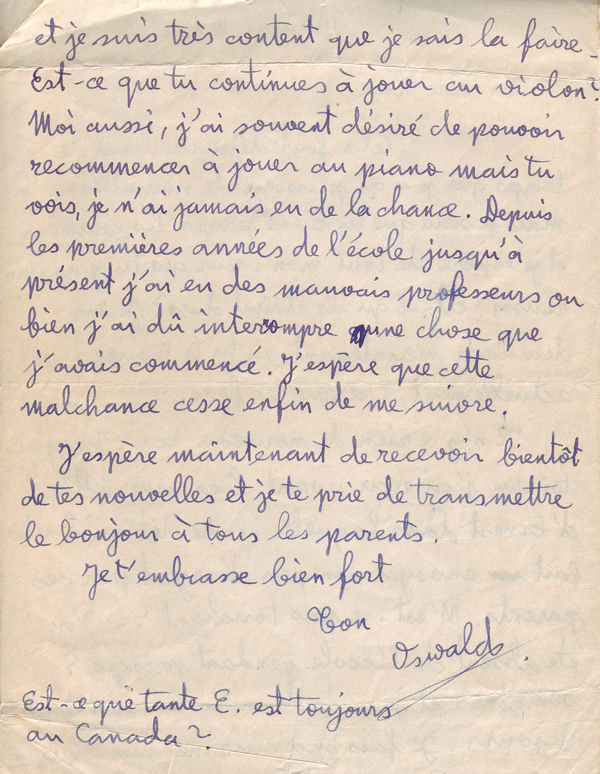 et je suis très content que je sais la faire.
Est-ce que tu continues à jouer au violon?
Moi aussi, j'ai souvent désiré de pouvoir
recommencer à jouer au piano mais tu
vois, je n'ai jamais eu de la chance. Depuis
les premières années de l'école jusqu'à
présent j'ai eu des mauvais professeurs ou
bien j'ai dû interrompre une chose que
j'avais commencé. J'espère que cette
malchance cesse enfin de me suivre.
J'espère maintenant de recevoir bientôt
de tes nouvelles et je te prie de transmettre
le bonjour à tous les parents.
Je t'embrasse bien fort
Ton
Oswald.
Est-ce que tante E. est toujours
au Canada?